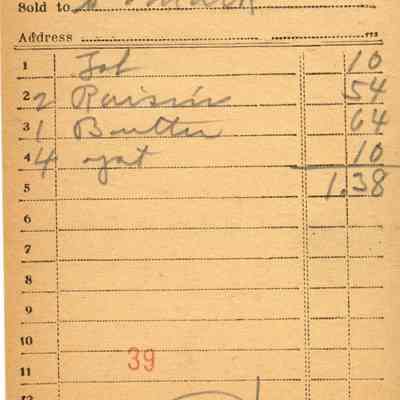 Sold to
Address
1 Tob 10
2 2 Raisin 54
3 1 Boutter 64
4 4 yat 10
5 1.38
6
7
8
9
10
39
11
12